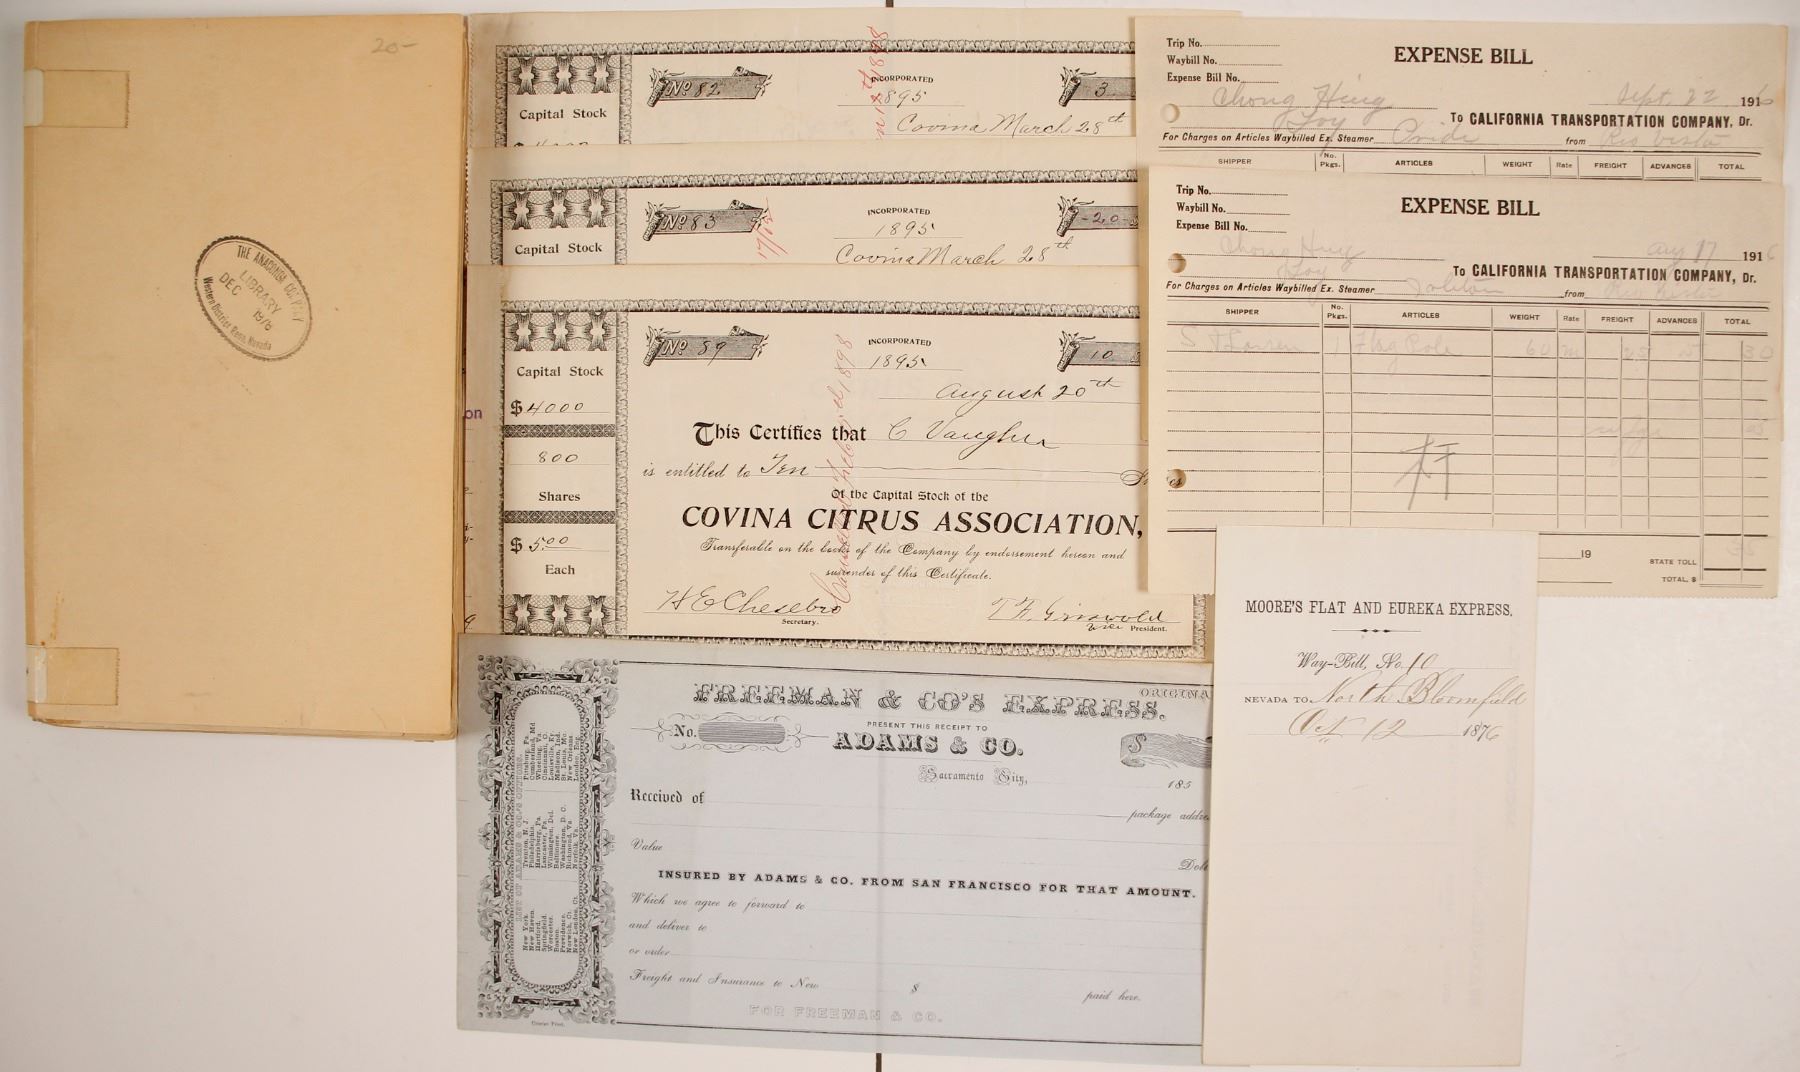 20-
THE ANACONDA COMPANY
LIBRARY
DEC 1976
Western District Reno, Nevada
on
Capital Stock
No 82
INCORPORATED
1895
3
Covina March 28th
Capital Stock
No 83
INCORPORATED
1895
-20-
Covina March 28th
Capital Stock
$ 4000
800
Shares
$ 5.00
Each
No 89
INCORPORATED
1895
10
August 20th
This Certifies that C Vaughn
is entitled to Ten
Of the Capital Stock of the
COVINA CITRUS ASSOCIATION,
Transferable on the books of the Company by endorsement hereon and
surrender of this Certificate.
H E Chesebro
Secretary.
T. F. Griswold
Vice President.
1898
EXPENSE BILL
Trip No.
Waybill No.
Expense Bill No.
Chong Hing
Sept. 22 1916
Joy
To CALIFORNIA TRANSPORTATION COMPANY, Dr.
For Charges on Articles Waybilled Ex. Steamer Pride from Rio Vista
SHIPPER No. Pkgs. ARTICLES WEIGHT Rate FREIGHT ADVANCES TOTAL
EXPENSE BILL
Trip No.
Waybill No.
Expense Bill No.
Chong Hing
Aug 17 1916
Joy
To CALIFORNIA TRANSPORTATION COMPANY, Dr.
For Charges on Articles Waybilled Ex. Steamer from Rio Vista
SHIPPER No. Pkgs. ARTICLES WEIGHT Rate FREIGHT ADVANCES TOTAL
1 Flag Pole 60 m 25 5 30
19
STATE TOLL
TOTAL, $
MOORE'S FLAT AND EUREKA EXPRESS.
Way-Bill, No. 10
NEVADA TO North Bloomfield
Oct 12 1876
FREEMAN & CO'S EXPRESS.
ORIGINA
No.
PRESENT THIS RECEIPT TO
ADAMS & CO.
$
Sacramento City, 185
Received of
package addre
Value
Doll
INSURED BY ADAMS & CO. FROM SAN FRANCISCO FOR THAT AMOUNT.
Which we agree to forward to
and deliver to
or order
Freight and Insurance to New $ paid here.
FOR FREEMAN & CO.
LIST OF ADAMS & CO'S OFFICES.
New York.
New Haven.
Hartford.
Springfield.
Worcester.
Boston.
Providence.
Norwich, Ct.
New London, Ct.
Trenton, N. J.
Philadelphia.
Harrisburg, Pa.
Lancaster, Pa.
Wilmington, Del.
Baltimore.
Washington, D. C.
Richmond, Va.
Norfolk, Va.
Pittsburg, Pa.
Cumberland, Md
Wheeling, Va.
Cincinnati, O.
Louisville, Ky.
Madison, Ind.
St. Louis, Mo.
New Orleans.
London, Eng.